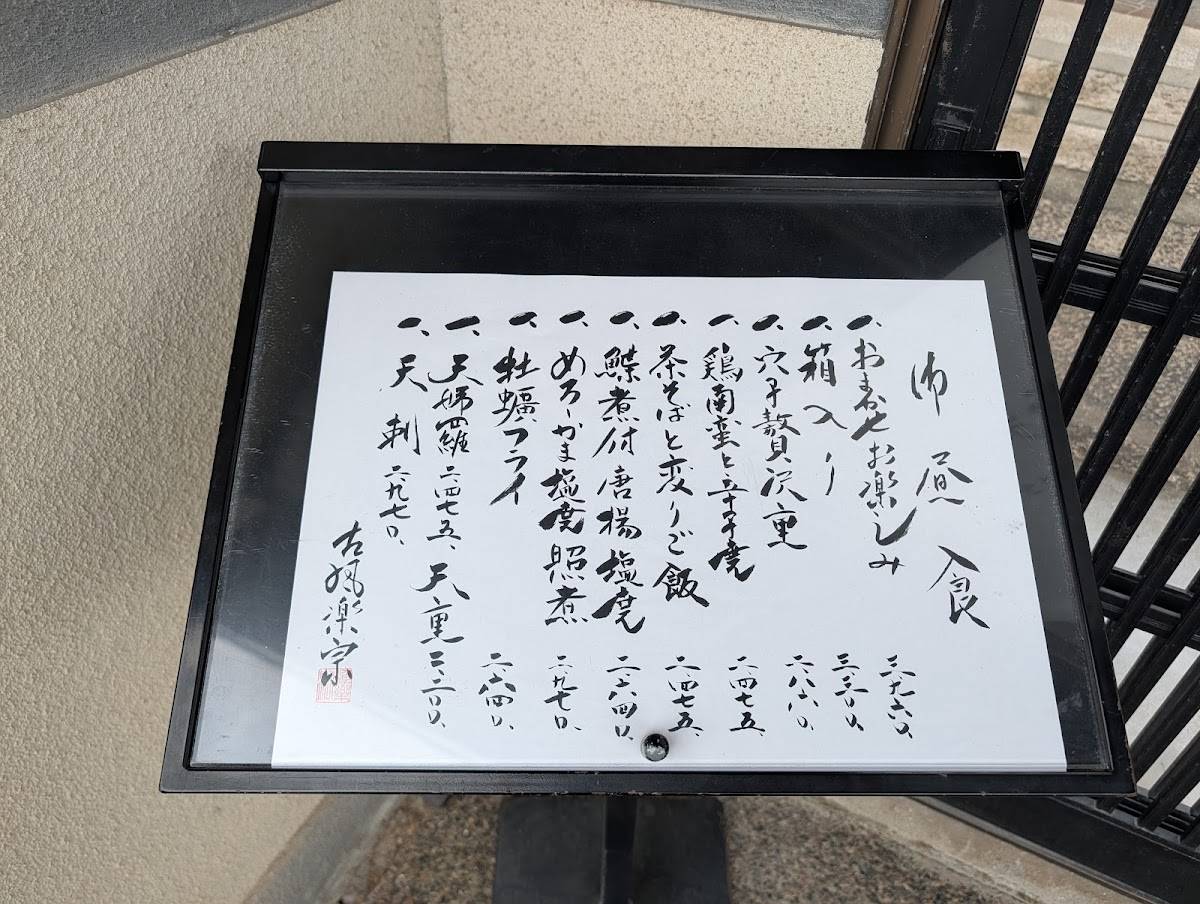 御昼食
一、おまかせお楽しみ 三、九六〇、
一、箱入り 三、三〇〇、
一、穴子贅沢重 二、八六〇、
一、鶏南蛮と玉子焼 二、四七五、
一、茶そばと変りご飯 二、四七五、
一、鰈煮付唐揚塩焼 二、六四〇、
一、めろーかま塩焼照煮 二、九七〇、
一、牡蠣フライ 二、六四〇、
一、天婦羅 二、四七五、天重 三、三〇〇、
一、天刺 二、九七〇、
古風楽宗